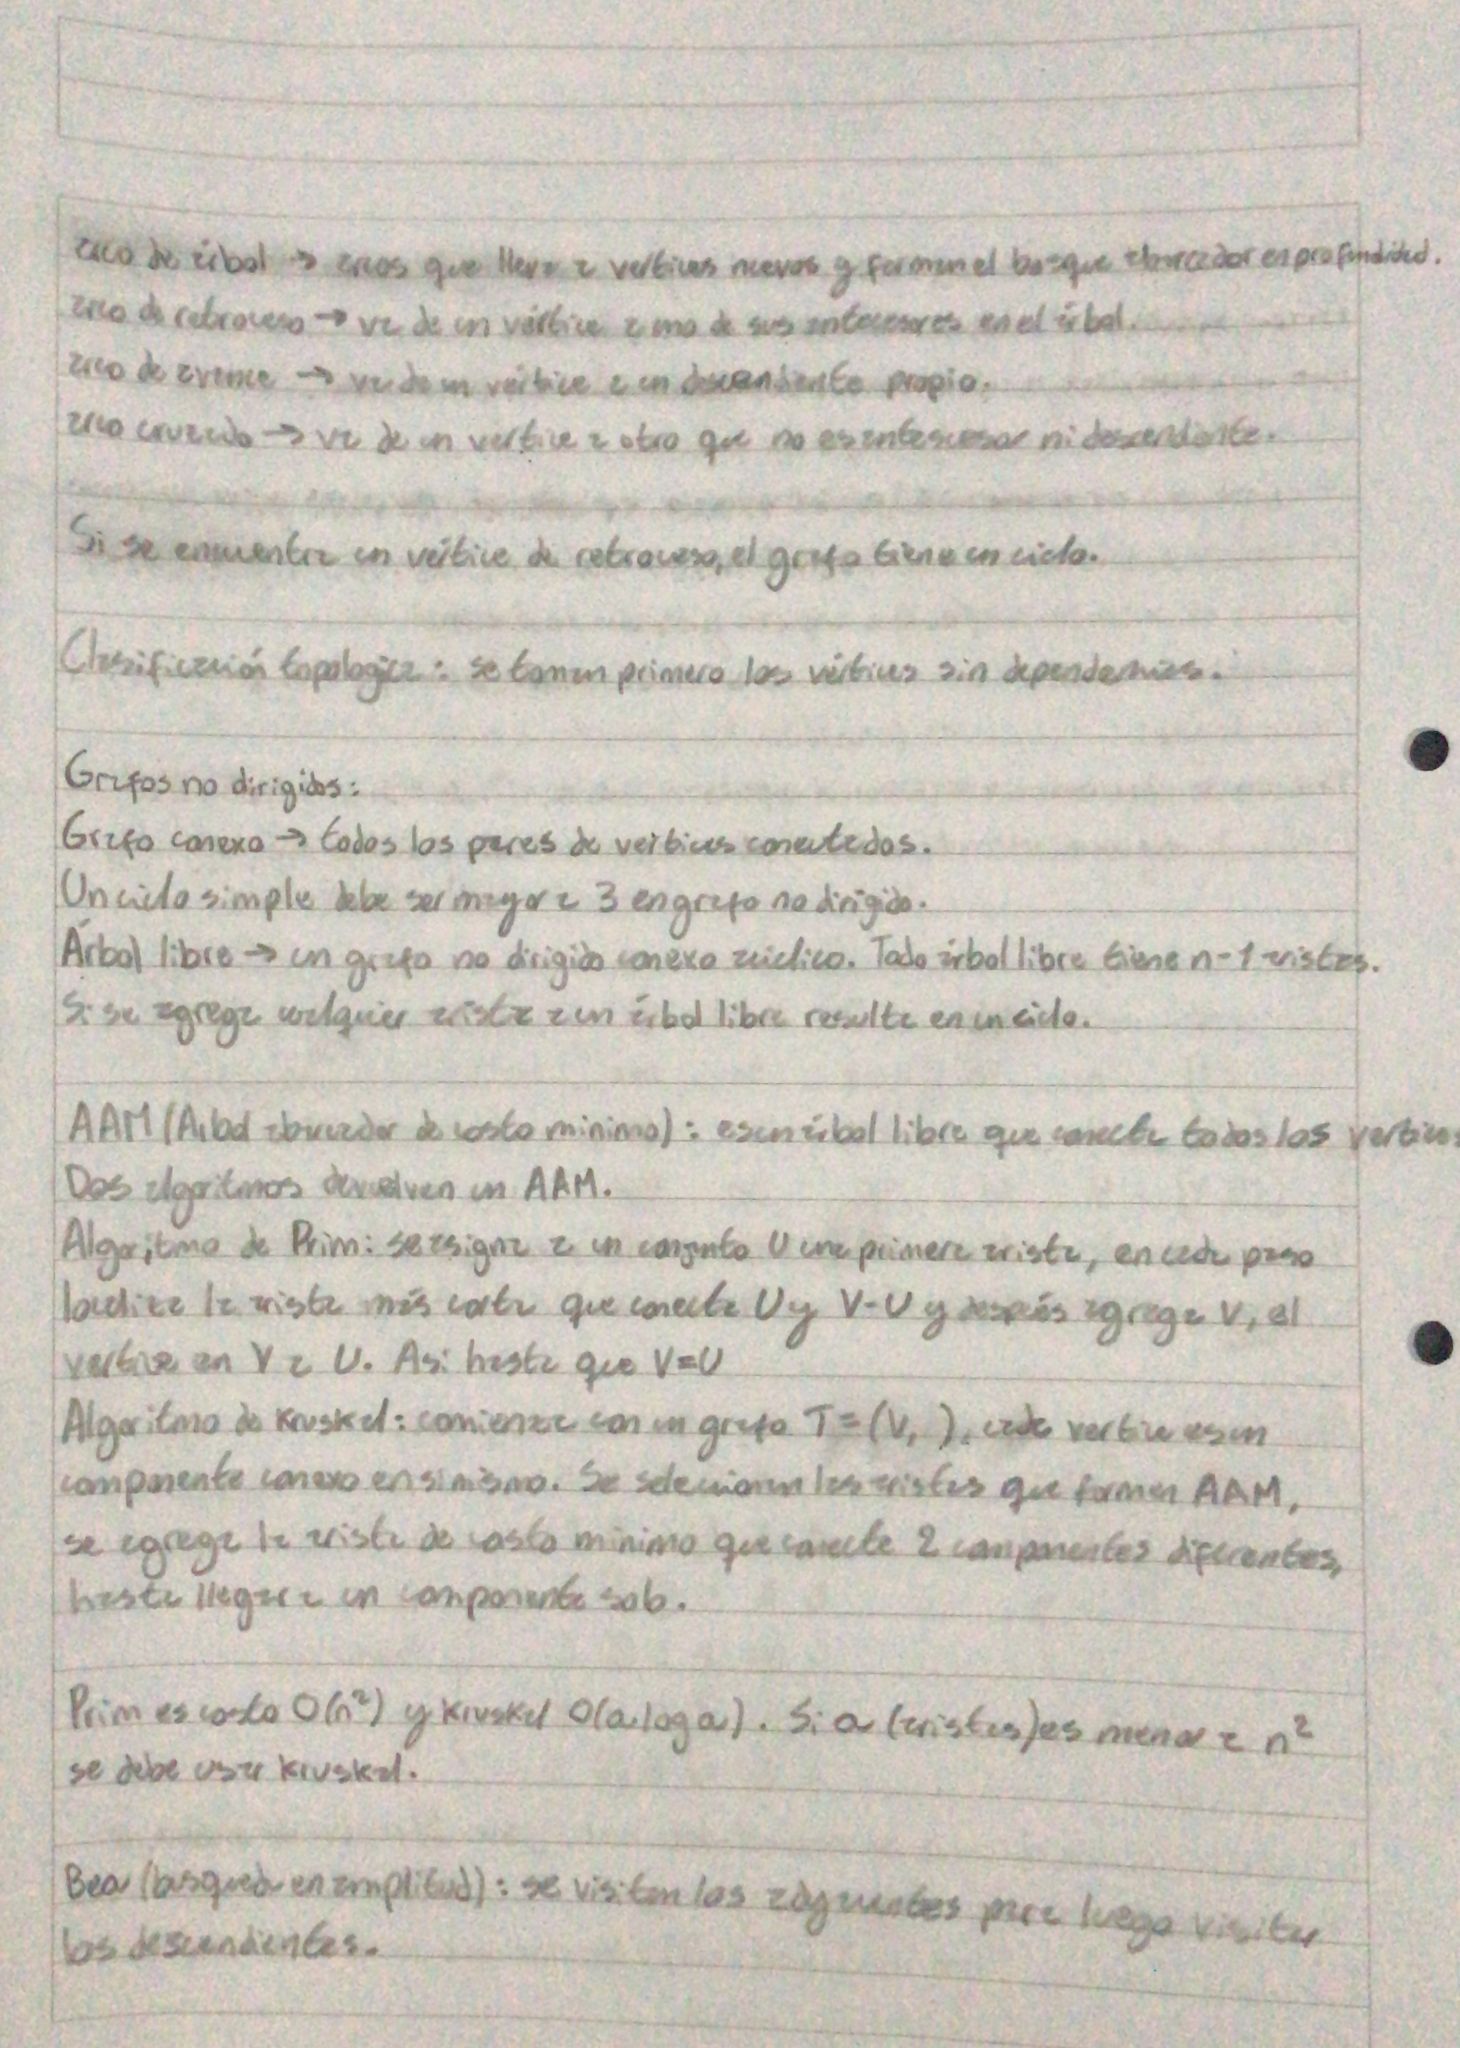 arco de árbol → arcos que lleva a vertices nuevos y forman el bosque abarcador en profundidad.
arco de retroceso → va de un vértice a uno de sus antecesores en el árbol.
arco de avance → va de un vértice a un descendiente propio.
arco cruzado → va de un vertice a otro que no es antescesor ni descendiente.
Si se encuentra un vértice de retroceso, el grafo tiene un ciclo.
Clasificación topologica: se toman primero los vértices sin dependencias.
Grafos no dirigidos:
Grafo conexo → todos los pares de vertices conectados.
Un ciclo simple debe ser mayor a 3 en grafo no dirigido.
Árbol libre → un grafo no dirigido conexo aciclico. Todo árbol libre tiene n-1 aristas.
Si se agrega cualquier arista a un árbol libre resulta en un ciclo.
AAM (Arbol abarcador de costo minimo): es un árbol libre que conecta todos los vertices
Dos algoritmos devuelven un AAM.
Algoritmo de Prim: se asigna a un conjunto U una primera arista, en cada paso
localiza la arista más corta que conecta U y V-U y después agrega V, el
vertice en V a U. Asi hasta que V=U
Algoritmo de Kruskal: comienza con un grafo T=(V, ), cada vertice es un
componente conexo en si mismo. Se seleccionan las aristas que forman AAM,
se agrega la arista de costo minimo que conecte 2 componentes diferentes,
hasta llegar a un componente solo.
Prim es costo O(n²) y Kruskal O(a log a). Si a (aristas) es menor a n²
se debe usar Kruskal.
Bea (busqueda en amplitud): se visitan los adyacentes para luego visitar
los descendientes.